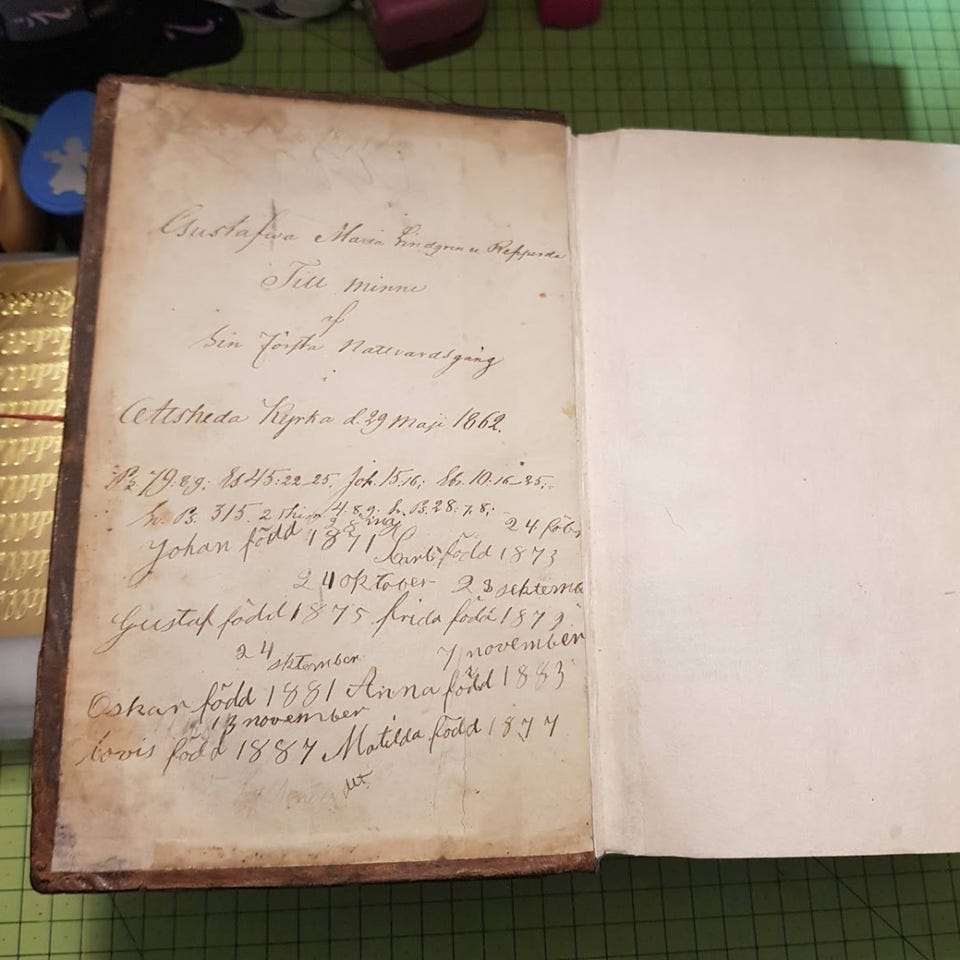 Gustafwa Maria Lindgren u Repperda
Till minne
af
Sin Första Nattvardsgång
i
Alsheda Kyrka d. 29 Maji 1862.
Ps 79: 8,9; Es 45: 22-25, Joh. 15.16; Eb. 10: 16-25;
Sw. Ps. 315. 2 4.8.9; Sw. Ps. 28: 7,8;
24 feb
Johan född 1871 Karl född 1873
24 oktober 23 sektemb
Gustaf född 1875 frida född 1879
24 sktember 7 november
Oskar född 1881 Anna född 1883
13 november
lovis född 1887 Matilda född 1877